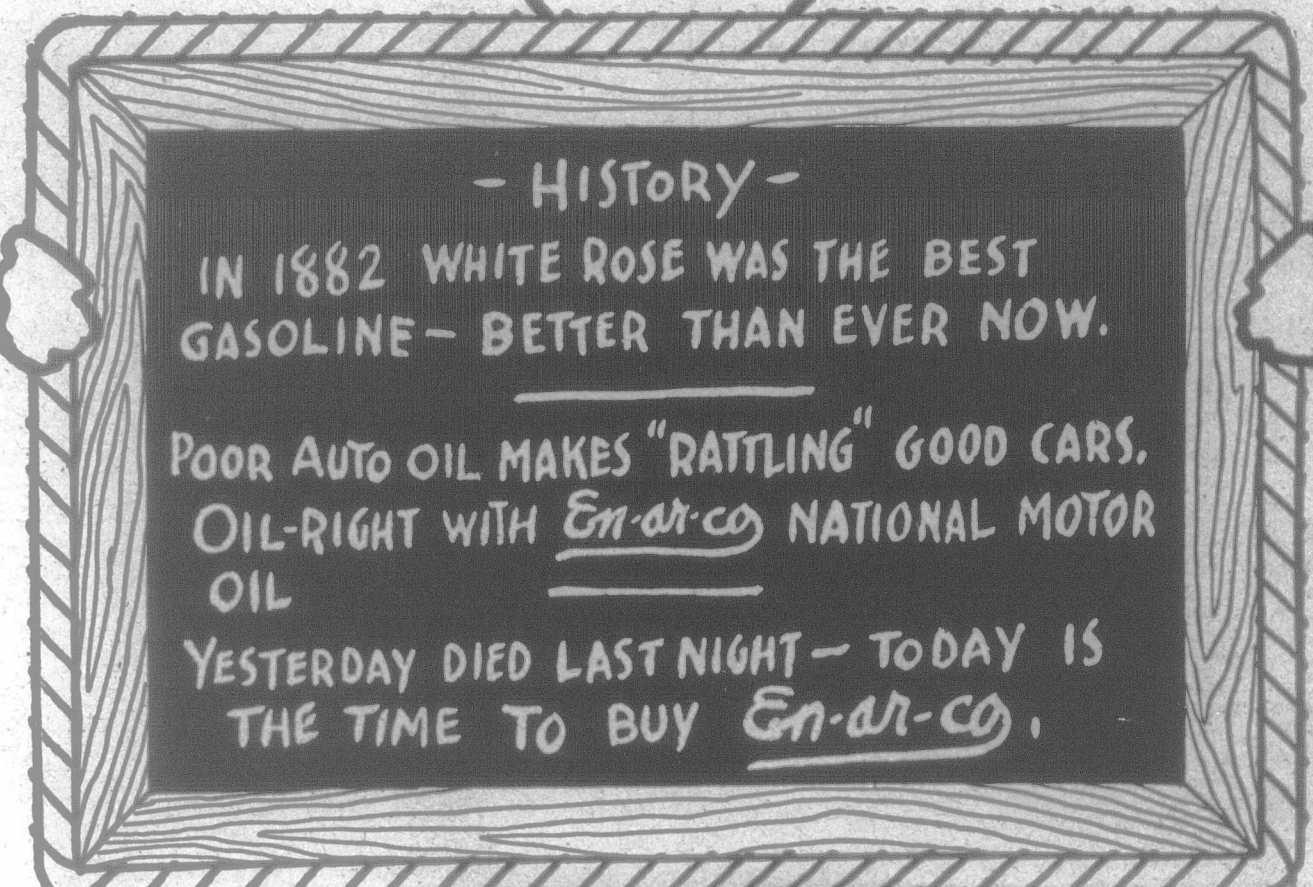 - HISTORY -
IN 1882 WHITE ROSE WAS THE BEST
GASOLINE - BETTER THAN EVER NOW.
POOR AUTO OIL MAKES "RATTLING" GOOD CARS.
OIL-RIGHT WITH En-ar-co NATIONAL MOTOR
OIL
YESTERDAY DIED LAST NIGHT - TODAY IS
THE TIME TO BUY En-ar-co.